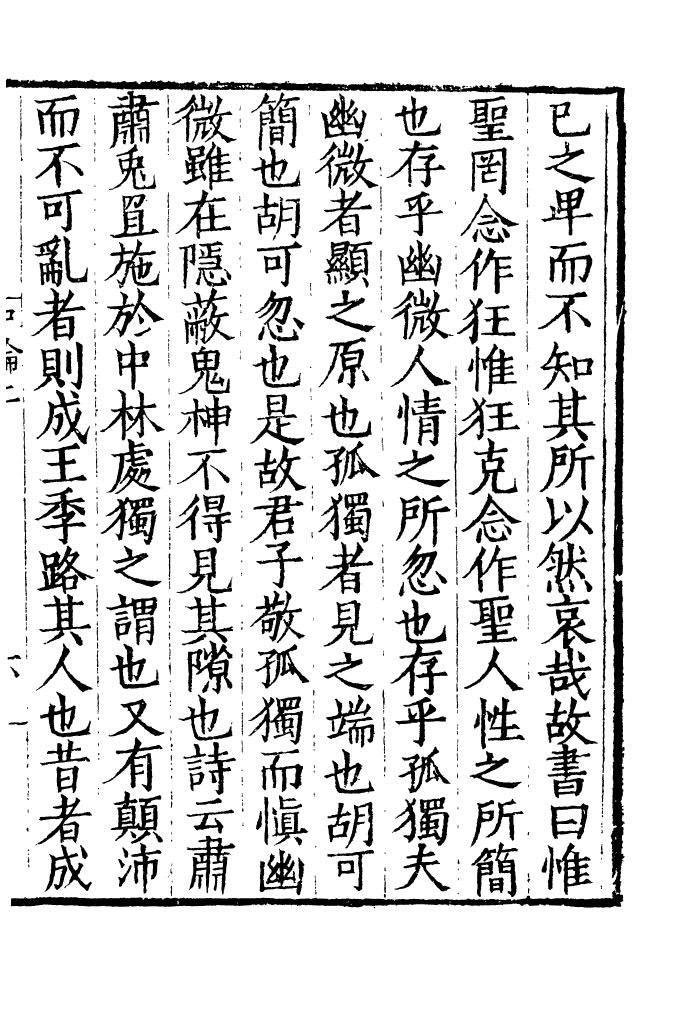 已之卑而不知其所以然哀哉故書曰惟
聖罔念作狂惟狂克念作聖人性之所簡
也存乎幽微人情之所忽也存乎孤獨夫
幽微者顯之原也孤獨者見之端也胡可
簡也胡可忽也是故君子敬孤獨而慎幽
微雖在隱蔽鬼神不得見其隙也詩云肅
肅兎罝施於中林處獨之謂也又有顛沛
而不可亂者則成王季路其人也昔者成